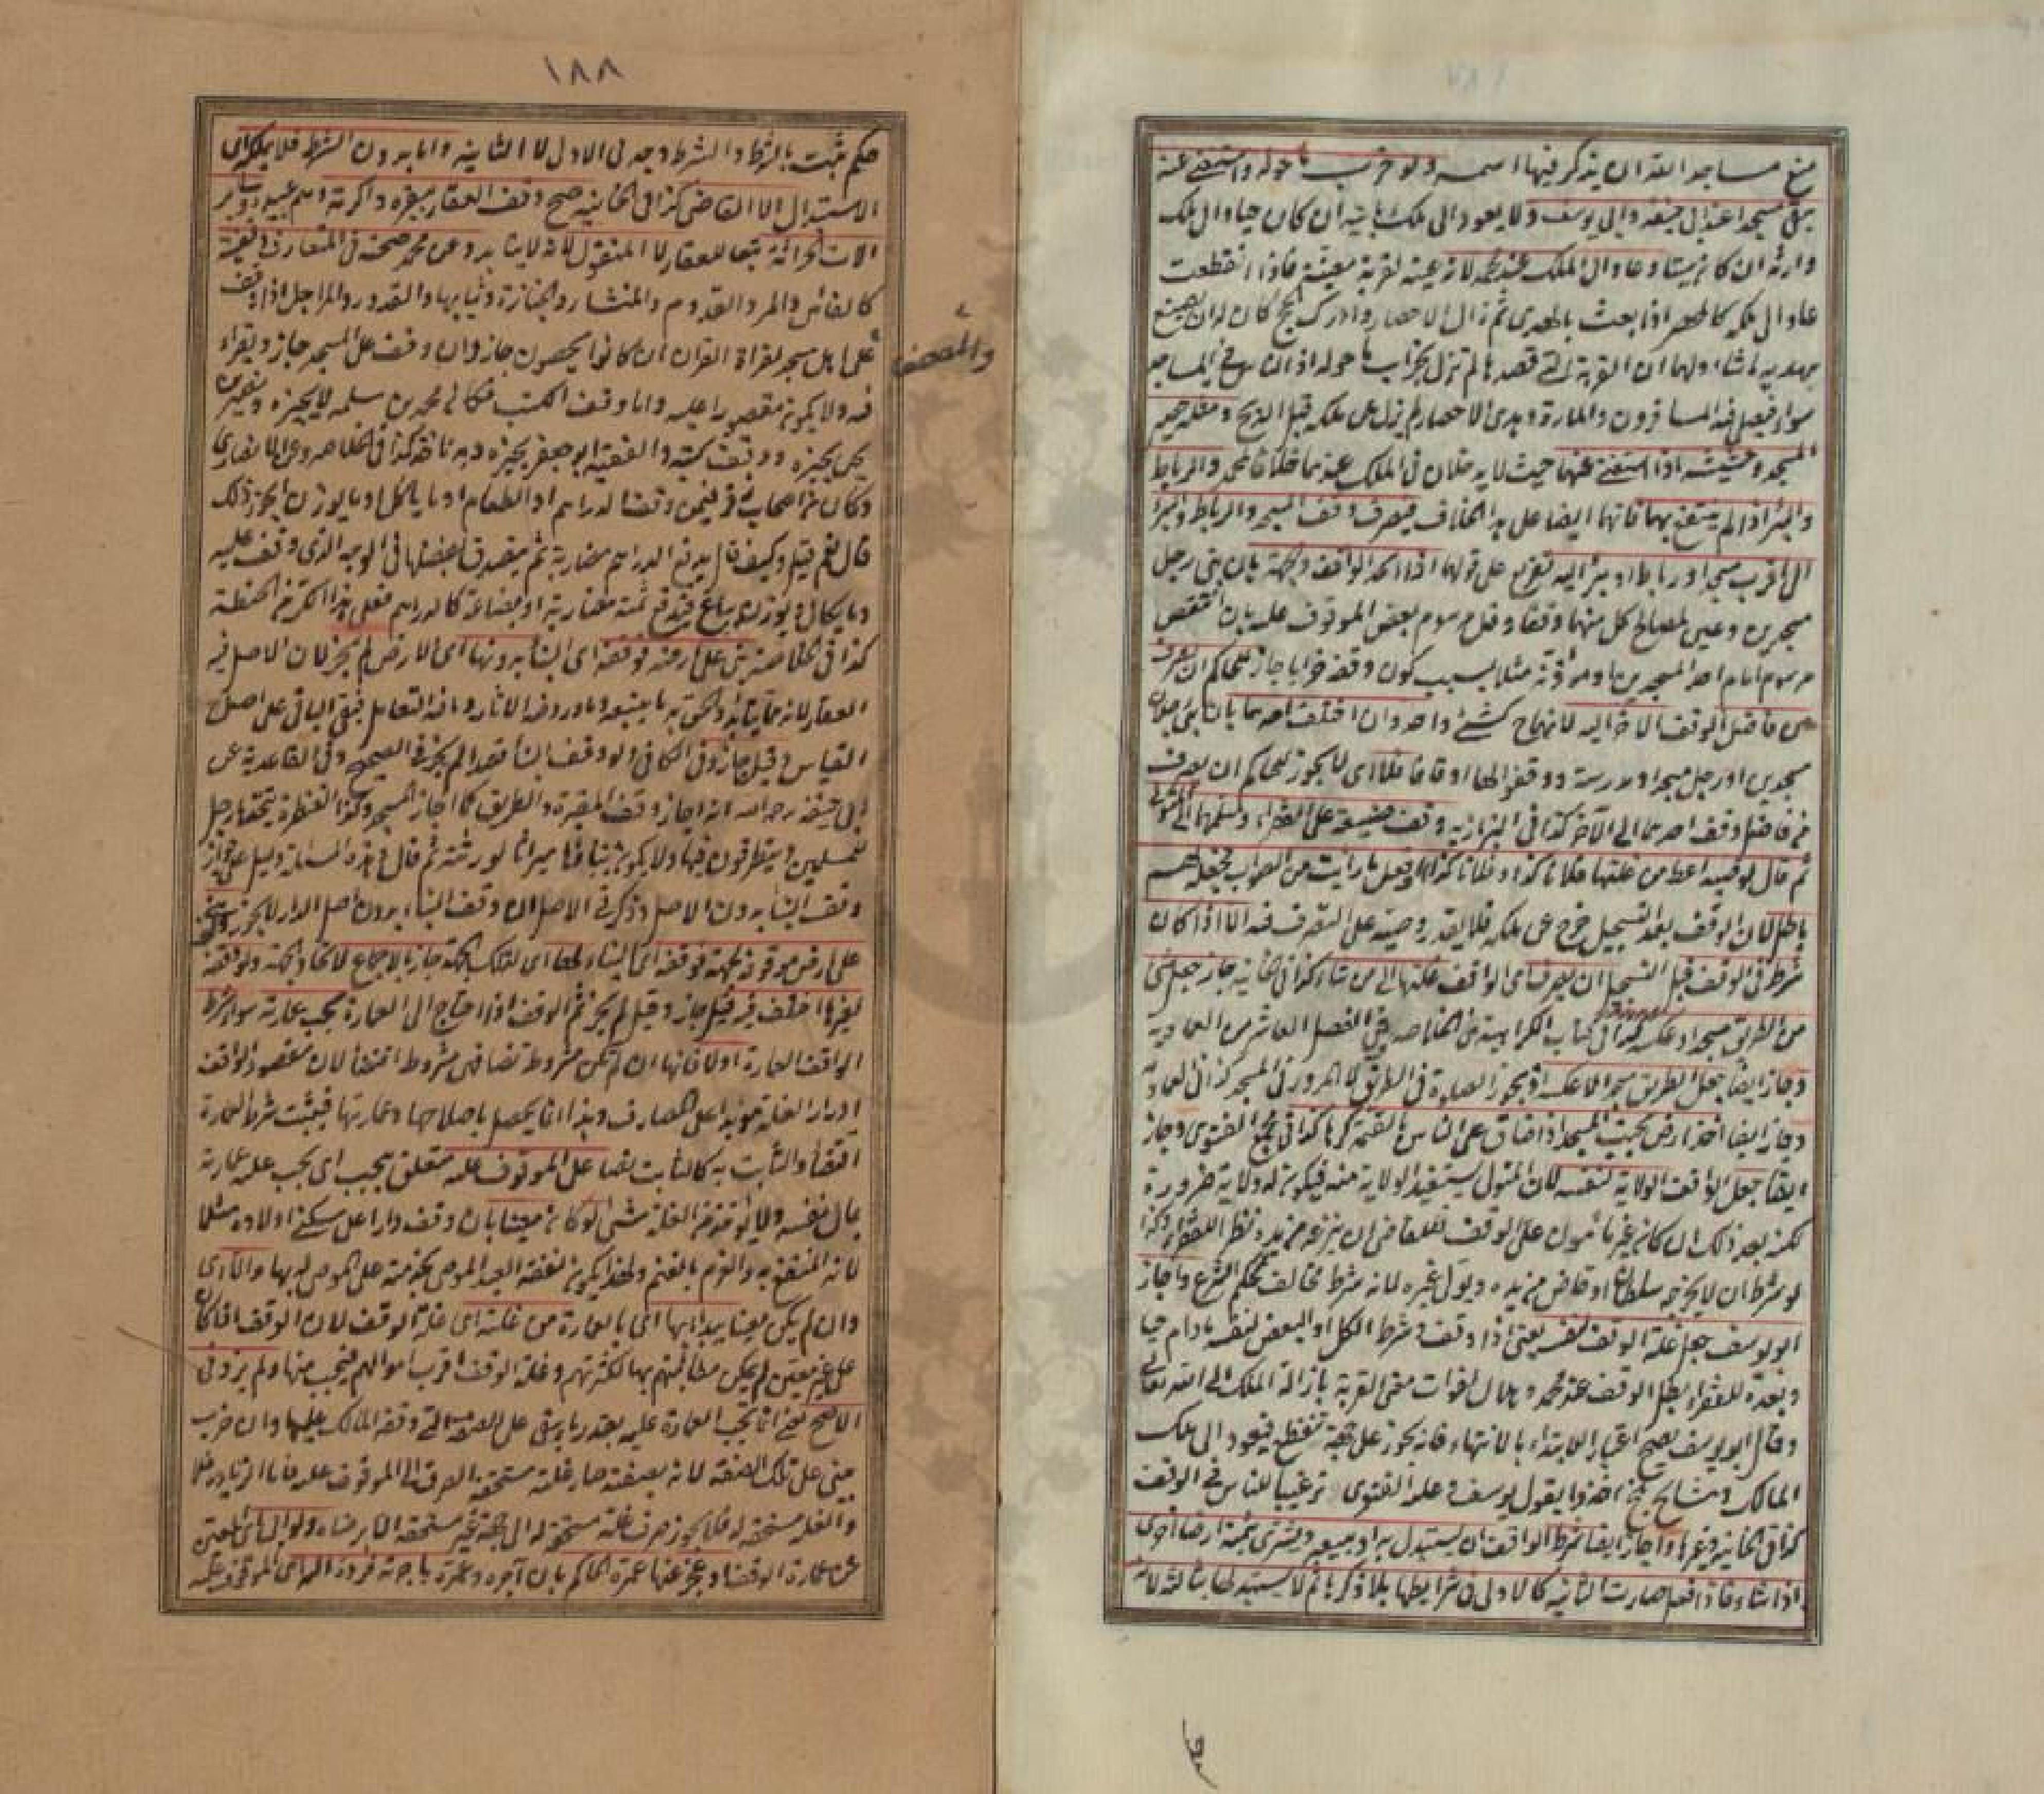 منع مساجد الله ان يذكر فيها اسمه ولو خرب ما حوله واستغنى عنه
يبقى مسجدا عند ابى حنيفة وابى يوسف ولا يعود الى ملك بانيه ان كان حيا والى ملك
وارثه ان كان ميتا وعاد الى الملك عند محمد لانه عينه لقربة معينة فاذا انقطعت
عاد الى ملكه كالمحصر اذا بعث بالهدى ثم زال الاحصار وادرك الحج كان له ان يصنع
بهديه ما شاء ولهما ان القربة التى قصدها لم تزل بخراب ما حوله اذ الناس فى المساجد
سواء فيصلى فيه المسافرون والمارة وهدى الاحصار لم يزل عن ملكه قبل الذبح ومثله حصير
المسجد وحشيشه اذا استغنى عنهما حيث لا يدخلان فى الملك عندهما خلافا لمحمد والرباط
والبئر اذا لم ينتفع بهما فانهما ايضا على هذا الخلاف فيصرف وقف المسجد والرباط والبئر
الى اقرب مسجد او رباط او بئر اليه تفريع على قولهما اذا اتحد الواقف والجهة بان بنى رجل
مسجدين وعين لمصالح كل منهما وقفا وقل مرسوم بعض الموقوف عليه بان انتقص
مرسوم امام احد المسجدين او مؤذنه مثلا بسبب كون وقفه خرابا جاز للحاكم ان يصرف
من فاضل الوقف الاخر اليه لانهما ح كشئ واحد وان اختلف احدهما بان بنى رجلان
مسجدين او رجل مسجدا ومدرسة ووقف لهما اوقافا فلا اى لا يجوز للحاكم ان يصرف
من فاضل وقف احدهما الى الآخر كذا فى البزازية وقف ضيعة على الفقراء وسلمها الى المتولى
ثم قال لوصيه اعط من غلتها فلانا كذا وفلانا كذا وافعل ما رأيت من الصواب فجعله لهم
باطل لان الوقف بعد التسجيل خرج عن ملكه فلا يقدر وصيه على التصرف فيه الا اذا كان
شرط فى الوقف قبل التسجيل ان يصرف اى الواقف غلتها الى من شاء كذا فى الخانية جاز جعل شئ
من الطريق مسجدا وعكسه كذا فى كتاب الكراهية من الخلاصة وفى الفصل العاشر من العمادية
وجاز ايضا جعل الطريق مسجدا لا عكسه اذ يجوز الصلوة فى الطريق لا المرور فى المسجد كذا فى العمادية
وجاز ايضا اخذ ارض بجنب المسجد اذا ضاق على الناس بالقيمة كرها كذا فى مجمع الفتوى وجاز
ايضا جعل الواقف الولاية لنفسه لان المتولى يستفيد الولاية منه فيكون له ولاية ضرورة
لكنه بعد ذلك ان كان غير مأمون على الوقف فللقاضى ان ينزعه من يده نظرا للفقراء وكذا
لو شرط ان لا يخرجه سلطان او قاض من يده ويولى غيره لانه شرط مخالف لحكم الشرع واجاز
ابو يوسف جعل غلة الوقف لنفسه يعنى اذا وقف وشرط الكل او البعض لنفسه مادام حيا
وبعده للفقراء بطل الوقف عند محمد وهلال لفوات معنى القربة بازالة الملك الى الله تعالى
وقال ابو يوسف يصح اعتبارا للابتداء بالانتهاء فانه يجوز على جهة تنقطع فيعود الى ملك
المالك ومشايخ بلخ اخذوا بقول ابى يوسف وعليه الفتوى ترغيبا للناس فى الوقف
كذا فى الخانية وغيرها واجاز ايضا شرط الواقف ان يستبدل به او يبيعه ويشترى بثمنه ارضا اخرى
اذا شاء فاذا فعل صارت الثانية كالاولى فى شرايطها بلا ذكرها ثم لا يستبدلها بثالثة لانه
١٨٨
حكم ثبت بالشرط والشرط وجد فى الاولى لا الثانية واما بدون الشرط فلا يملكه اى
الاستبدال الا القاضى كذا فى الخانية صح وقف العقار ببقره واكرته وهم عبيده وسائر
الات الحراثة تبعا للعقار لا المنقول لانه لا يتأبد وعن محمد صحته فى المتعارف وقفيته
كالفاس والمر والقدوم والمنشار والجنازة وثيابها والقدور والمراجل اذا وقف
والمصحف
على اهل مسجد لقراءة القران ان كانوا يحصون جاز وان وقف على المسجد جاز ويقراء
فيه ولا يكون مقصورا عليه واما وقف الكتب فكان محمد بن سلمه لا يجيزه ونصير بن
يحيى يجيزه ووقف كتبه والفقيه ابو جعفر يجيزه وبه ناخذ كذا فى الخلاصه وعن الانصارى
وكان من اصحاب زفر فيمن وقف الدراهم او الطعام او ما يكال او ما يوزن ايجوز ذلك
قال نعم قيل وكيف قال يدفع الدراهم مضاربة ثم يتصدق بفضلها فى الوجه الذى وقف عليه
وما يكال ويوزن يباع فيدفع ثمنه مضاربة او بضاعة كالدراهم فعلى هذا الكر من الحنطة
كذا فى الخلاصة بنى على ارضه فوقفه اى البناء بدونها اى الارض لم يجز لان الاصل فيه
العقار لانه مما يتأبد والحق به ما يتبعه وما ورد فيه الاثار وما فيه التعامل فبقى الباقى على اصل
القياس وقيل جاز وفى الكافى لو وقف البناء قصدا لم يجز فى الصحيح وفى القاعدية عن
ابى حنيفة رحمه الله انه اجاز وقف المقبرة والطريق كما اجاز المسجد وكذا القنطرة يتخذها رجل
للمسلمين ويتطرقون فيها ولا يكون بناءها ميراثا لورثته ثم قال وهذه المسئلة دليل على جواز
وقف البناء بدون الاصل وذكر فى الاصل ان وقف البناء بدون اصل الدار لا يجوز وبنى
على ارض موقوفة لجهة فوقفه اى البناء لها اى لتلك الجهة جاز بالاجماع لاتحاد الجهة ولو وقفه
لغيرها اختلف فيه فقيل جاز وقيل لم يجز ثم الوقف اذا احتاج الى العمارة يجب عمارته سواء شرط
الواقف العمارة او لا فانها ان لم تكن مشروطة نصا فهى مشروطة اقتضاء لان مقصود الواقف
ادرار الغلة مؤبدا على المصارف وهذا انما يحصل باصلاحها وعمارتها فيثبت شرط العمارة
اقتضاء والثابت به كالثابت نصا على الموقوف عليه متعلق بيجب اى يجب عليه عمارته
بمال نفسه ولا يؤخذ من الغلة شئ لو كان معينا بان وقف دارا على سكنى اولاده مثلا
لانه المنتفع به والغرم بالغنم ولهذا يكون نفقة العبد الموصى بخدمته على الموصى له بها والا اى
وان لم يكن معينا يبدأ بها اى بالعمارة من غلته اى غلة الوقف لان الوقف اذا كان
على غير معين لم يمكن مطالبتهم بها لكثرتهم وغلة الوقف اقرب اموالهم فيجب منها ولم يزد فى
الاصح يعنى انما تجب العمارة عليه بقدر ما يبقى على الصفة التى وقفه المالك عليها وان خرب
يبنى على تلك الصفة لانه بصفته صار غلته مستحقة الصرف الى الموقوف عليه فاما الزيادة فلا
والغلة مستحقه له فلا يجوز صرف غلة مستحقة له الى جهة غير مستحقة الا برضاه ولو ابى اى المعين
عن عمارة الوقف او عجز عنها عمره الحاكم بان آجره وعمره باجرته فرده الى اى الموقوف عليه